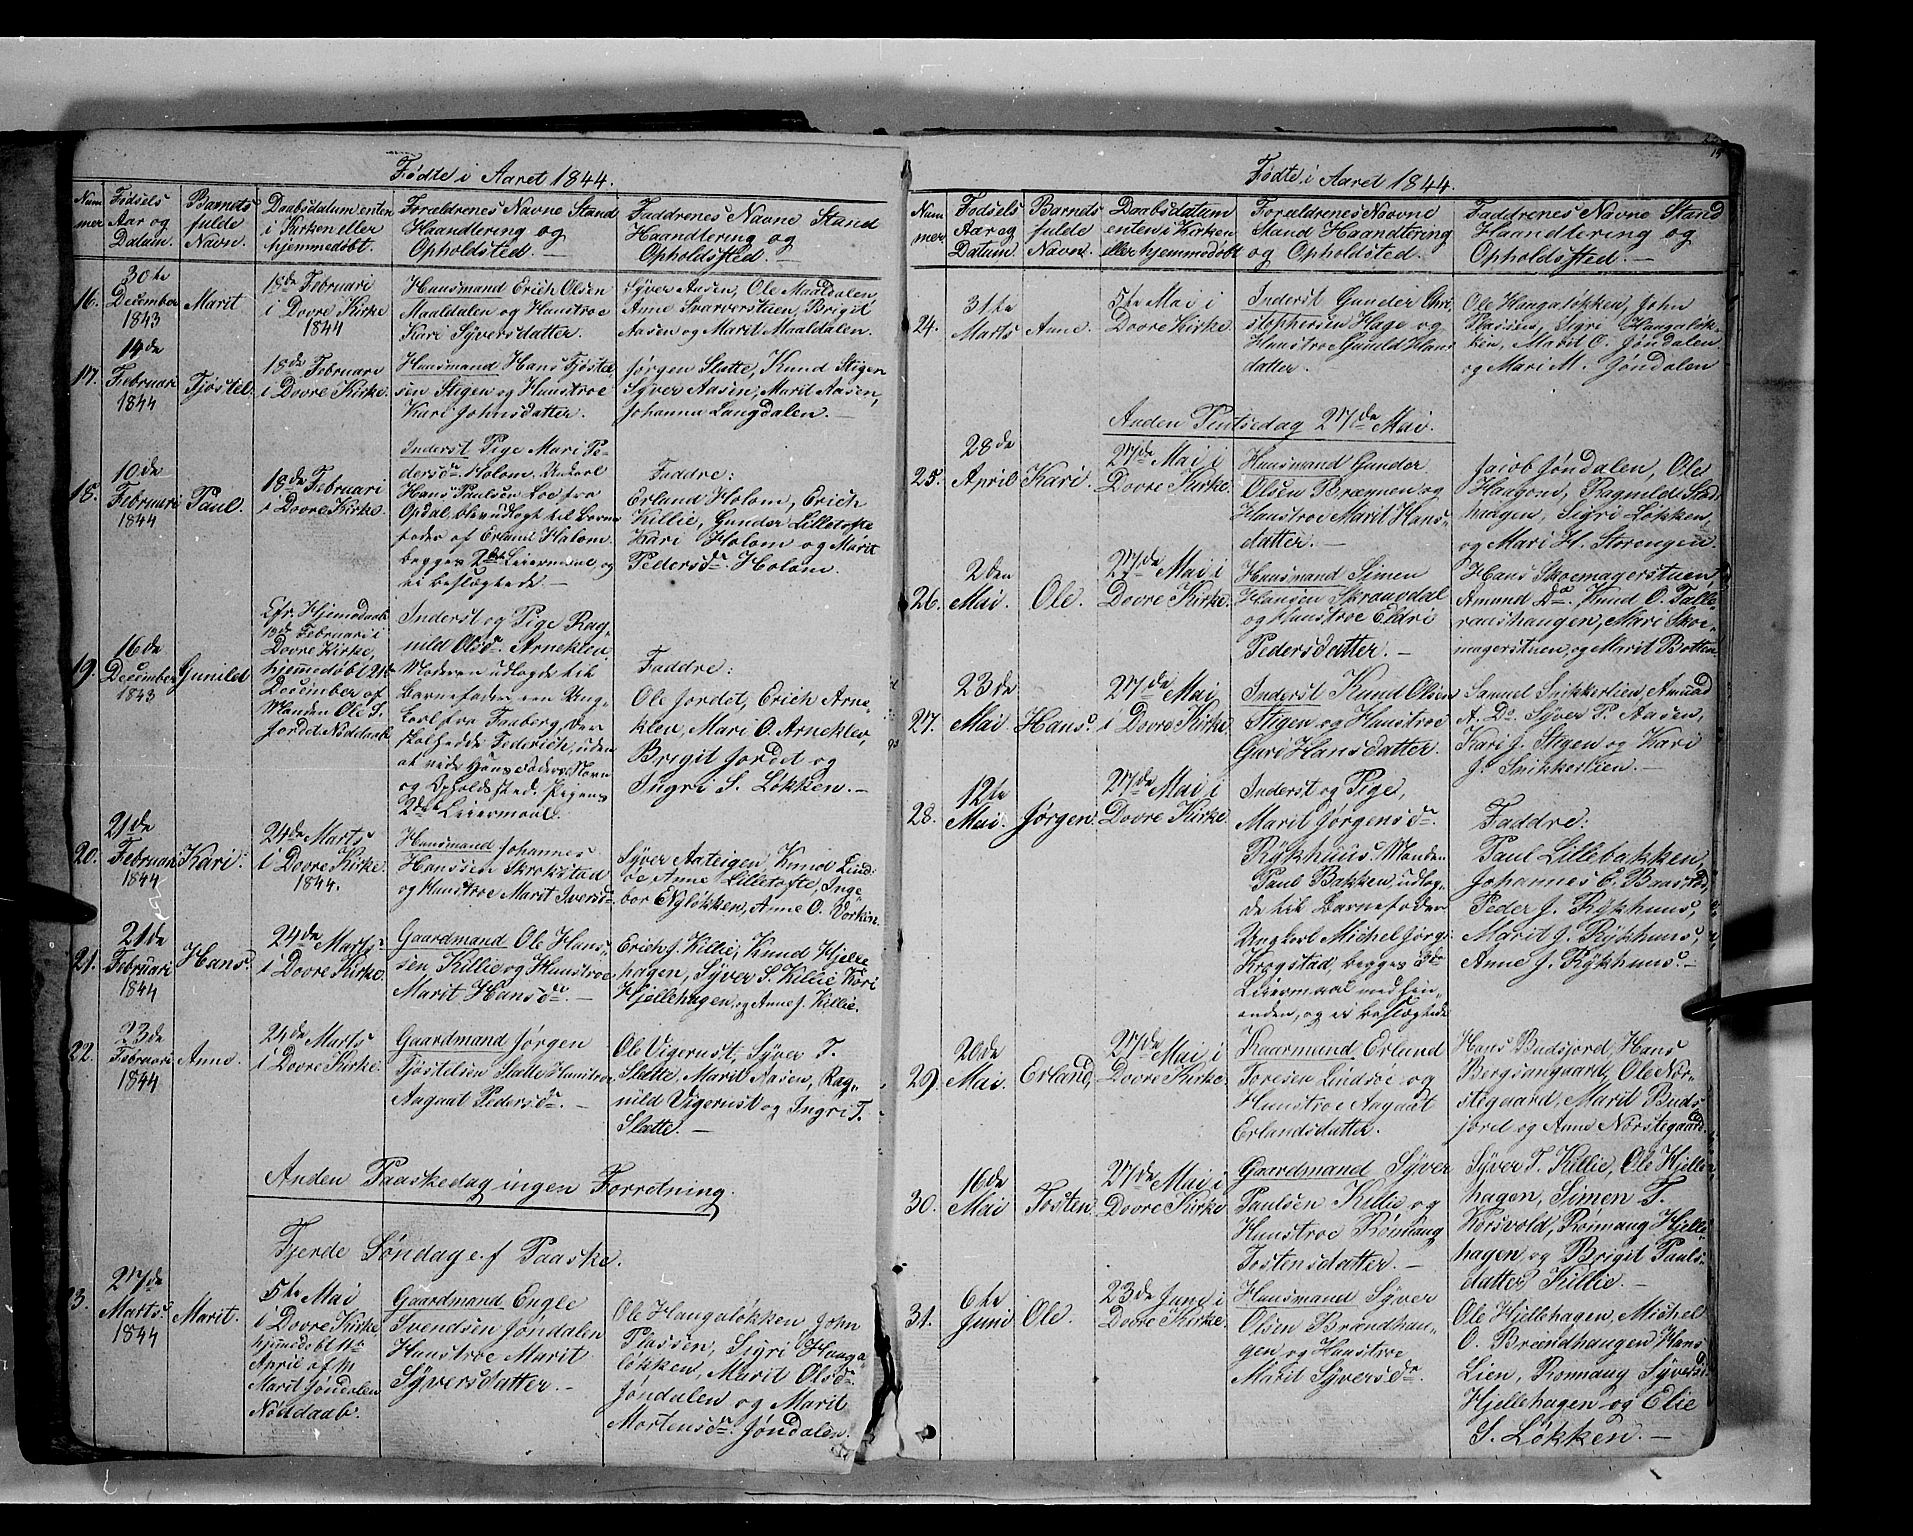 Fødte i Aaret 1844.
Num
mer
Fødsels
Aar og
Datum.
Barnets
fulde
Navn.
Daabsdatum enten
i Kirken eller
hjemmedøbt
Forældrenes Navne Stand
Haandtering og
Opholdsted. —
Faddrenes Navne Stand
Haandtering og
Opholdsted. —
16.
30te
December
1843
Marit
18de Februari
i Dovre Kirke
1844
Huusmand Erich Olsen
Maaldalen og Huustroe
Kari Syversdatter.
Syver Aasen, Ole Maaldalen,
Anne Svarverstuen, Brigit
Aasen og Marit Maaldalen.
17.
14de
Februari
1844
Tjøstel
18de Februari
i Dovre Kirke.
Huusmand Hans Tjøstel
sen Stigen og Huustroe
Kari Johnsdatter.
Jørgen Slette, Knud Stigen
Syver Aasen, Marit Aasen,
Johanna Langdalen. —
18.
10de
Februari
1844
Paul.
18de Februari
i Dovre Kirke.
Inderst Pige Mari Pe-
dersdr Holom. Ungkarl
Hans Paulsen Loe fra
Opdal, blev udlagt til Barne
fader af Erland Holom.
begges 2det Leiermaal, og
ei beslægtede —
Faddre:
Erland Holom, Erich
Killie, Gunder Lilletofte
Kari Holom og Marit
Pedersdr. Holom.
19.
16de
December
1843
Gunild
Efr. Hjemedaab
18de Februari i
Dovre Kirke,
hjemmedøbt 21de
December af
Manden Ole S.
Jordet Nøddaab
Inderst og Pige Rag-
nild Olsdr. Arneklev,
Moderen udlagde til
Barnefader een Ung-
karl fra Faaberg, der
skal hedde Federich, uden
at vide Hans Faders Navn
og Opholdsted. Pigens
2det Leiermaal.
Faddre:
Ole Jordet, Erich Arne-
klev, Mari O. Arneklev,
Brigit Jordet og
Ingri S. Løkken. —
20.
21de
Februari
1844
Kari.
24de Marts
i Dovre Kirke.
1844.
Huusmand Johannes
Hanssen Skrokstad
og Huustroe Marit Iversdr
Syver Aateigen, Knud Lind-
se Anne Lilletofte, Inge
bor Nyløkken, Anne O. Vorkin
21.
21de
Februari
1844
Hans.
24de Marts
i Dovre Kirke.
Gaardmand Ole Hans-
sen, Killie og Huustroe
Marit Hansdr. —
Erich J. Killie, Knud Hjelle
hagen, Syver S. Killie Kari
Hjellehagen og Anne J. Killie.
22.
23de
Februari
1844
Anne.
24de Marts
i Dovre Kirke.
Gaardmand Jørgen
Tjøstelsen Slette Huustroe
Aagaat Pedersdr. —
Ole Vigerust, Syver T.
Slette, Marit Aasen, Rag-
nild Vigerust og Ingri T.
Slette. —
Anden Paaskedag ingen Forretning.
Fjerde Søndag ef Paaske.
3.
27de
Marts.
1844
Marit.
5te Mai
i Dovre Kirke
hjemedøbt
April af M
Marit Jøndalen
Nøddaab.
Gaardmand Engle
Svendsen Jøndalen
Huustroe Marit
Syversdatter. —
Ole Haugaløkken, John
Plassen, Sigri Hauga-
løkken, Marit Olsdr.
Jøndalen og Marit
Mortensdr. Jøndalen.
Fødte i Aaret 1844.
Num
mer
Fødsels
Aar og
Datum.
Barnets
fulde
Navn.
Daabsdatum
enten i Kirken
eller hjemmedøbt
Forældrenes Navne
Stand Haandtering
og Opholdsted.
Faddrenes Navne Stand
Haandtering og
Opholdsted. —
24.
31te
Marts
Anne
5te Mai i
Dovre Kirke.
Inderst Gunder Chri-
stophersen Hage og
Huustroe Gunild Hans-
datter. —
Ole Haugaløkken, John
Plassen, Sigri Haugaløk-
ken, Marit O. Jøndalen
og Mari M. Jøndalen
Anden Pintsedag 27de Mai.
25.
28de
April
Kari.
27de Mai i
Dovre Kirke.
Huusmand Gunder
Olsen Brænnen og
Huustroe Marit Hans-
datter. —
Jacob Jøndalen, Ole
Haugom, Ragnild Stad-
haagen, Sigri Løkken,
og Mari H. Storengen.
26.
2den
Mai.
Ole.
27de Mai i
Dovre Kirke.
Huusmand Simen
Hansen Skraavdal
og Huustroe Eldri
Pedersdatter. —
Hans Skoemagerstuen,
Amund Do. Knud O. Talle-
raushaugen, Mari Skoe-
magerstuen, og Marit Botten.
27.
23de
Mai
Hans.
27de Mai
i Dovre Kirke.
Inderst Knud Olsen
Stigen og Huustroe
Guri Hansdatter.
Samuel Snikkerlien, Amund
A. Do. Syver P. Aasen,
Kari J. Stigen og Kari
J. Snikkerlien. —
28.
12te
Mai.
Jørgen
27de Mai i
Dovre Kirke.
Inderst og Pige,
Marit Jørgensdr.
Rykhuus. Manden
Paul Bakken, udlag-
de til Barnefader
Ungkarl Michel Jørgs.
Krogstad, begges 3de
Leiermaal med hin-
anden, og ei beslægtede
Faddre:
Paul Lillebakken,
Johannes E. Brustad,
Peder J. Rykhuus,
Marit J. Rykhuus,
Anne J. Rykhuus. —
29.
20de
Mai.
Erland,
27de Mai i
Dovre Kirke.
Kaarmand Erland
Toresen Lindsøe og
Huustroe Aagaat
Erlandsdatter.
Hans Budsjord, Hans
Bergsangaard, Ole Nør-
stegaard, Marit Buds-
jord og Anne Nørstegaard.
30.
16de
Mai
Tosten
27de Mai i
Dovre Kirke
Gaardmand Syver
Paulsen Killie og
Huustroe Rømaug
Tostensdatter. —
Syver T. Killie, Ole Hjelle
hagen, Simen T.
Korsvold, Rømaug Hjelle-
hagen og Brigit Pauls-
datter Killie. —
31.
6te
Juni
Ole.
23de Juni i
Dovre Kirke.
Huusmand Syver
Olsen Brændhau-
gen og Huustroe
Marit Syversdr.
Ole Hjellehagen, Michel
O. Brændhaugen Hans
Lien, Romaug Syversdr.
Hjellehagen og Elie
S. Løkken. —